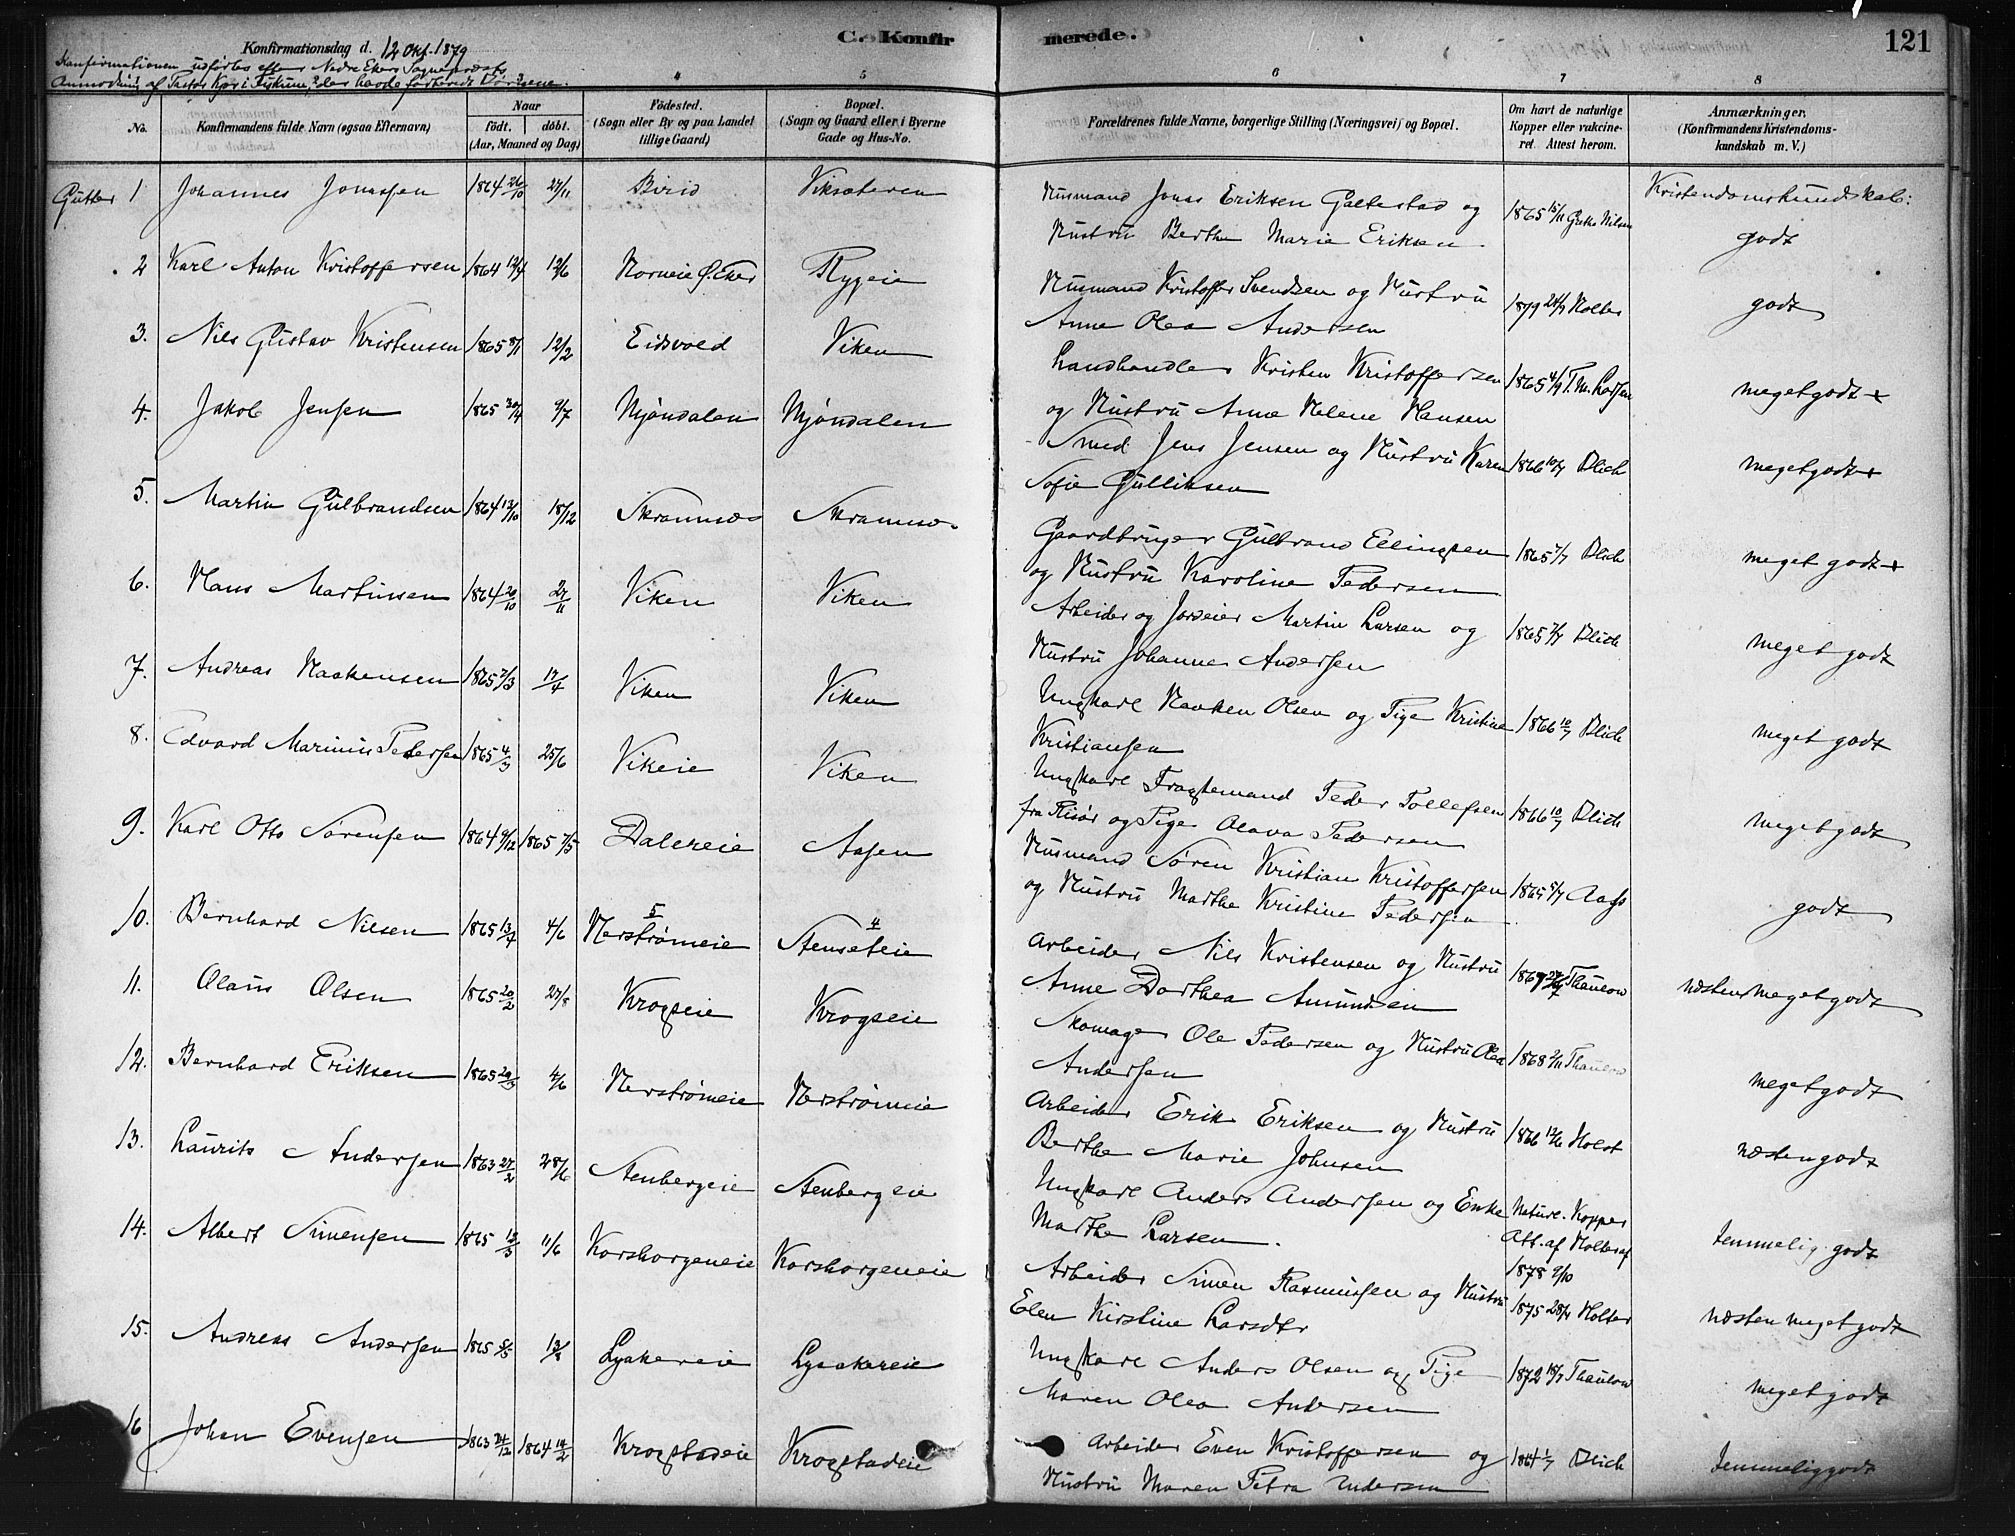 C. Konfirmerede.
121
Konfirmationsdag d. 12 Okt. 1879
Konfirmationen udførtes efter Nedre Ekers Sognepræsts
Anmodning af Pastor Kjær i Fiskum, der havde forberedt Børnene.
4 5 6 7 8
No.
Konfirmandens fulde Navn (ogsaa Efternavn)
Naar
født. døbt.
(Aar, Maaned og Dag)
Fødested.
(Sogn eller By og paa Landet
tillige Gaard)
Bopæl.
(Sogn og Gaard eller i Byerne
Gade og Hus-No.
Forældrenes fulde Navne, borgerlige Stilling (Næringsvei) og Bopæl.
Om havt de naturlige
Kopper eller vakcine-
ret. Attest herom.
Anmærkninger.
(Konfirmandens Kristendoms-
kundskab m. V.)
Gutter 1 Johannes Jonassen 1864 26/10 27/11 Birid Viksæteren
Husmand Jonas Eriksen Galtestad og
Hustru Berthe Marie Eriksen
1865 15/11 Nilsen
Kristendomskundskab:
godt
2 Karl Anton Kristoffersen 1864 12/4 12/6 Horneie Ø. Eker Rygeie
Husmand Kristoffer Svendsen og Hustru
Anne Olea Andersen
1879 24/9 Holter
godt
3. Nils Gustav Kristensen 1865 8/1 12/2 Eidsvold Viken
Landhandler Kristen Kristoffersen
og Hustru Anne Helene Hansen
1865 4/9 T. M. Larsen
meget godt +
4. Jakob Jensen 1865 30/4 9/7 Mjøndalen Mjøndalen
Smed Jens Jensen og Hustru Karen
Sofie Gulliksen
1866 10/7 Blich
meget godt +
5. Martin Gulbrandsen 1864 13/10 18/12 Skramsø Skramsø
Gaardbruger Gulbrand Ellingsen
og Hustru Karoline Pedersen
1865 7/7 Blich
meget godt +
6. Hans Martinsen 1864 20/10 27/11 Viken Viken
Arbeider og Jordeier Martin Larsen og
Hustru Johanne Andersen
1865 7/7 Blich
meget godt
7. Andreas Haakensen 1865 7/3 17/4 Viken Viken
Ungkarl Haaken Olsen og Pige Kristine
Kristiansen
1866 10/7 Blich
meget godt
8. Edvard Marinius Pedersen 1865 4/3 25/6 Vikeie Viken
Ungkarl Fragtemand Peder Tollefsen
fra Risør og Pige Olava Pedersen
1866 10/7 Blich
meget godt
9. Karl Otto Sørensen 1864 9/12 1865 7/5 Dalereie Aasen
Husmand Søren Kristian Kristoffersen
og Hustru Marthe Kristine Pedersen
1865 5/7 Aass
godt
10. Bernhard Nilsen 1865 13/4 4/6 Nerstrømeie Stenseteie
Arbeider Nils Kristensen og Hustru
Anne Dorthea Amundsen
Thaulow
næsten meget godt
11. Olaus Olsen 1865 20/2 27/8 Krogseie Krogseie
Skomager Ole Pedersen og Hustru Olea
Andersen
1868 2/11 Thaulow
meget godt
12. Bernhard Eriksen 1865 29/3 4/6 Nerstrømeie Nerstrømeie
Arbeider Erik Eriksen og Hustru
Berthe Marie Johnsen
1866 12/6 Holst
næsten godt
13. Laurits Andersen 1863 27/2 28/6 Stenbergeie Stenbergeie
Ungkarl Anders Andersen og Enke
Marthe Larsen.
Naturl. Kopper
Att. af Holter af
1878 9/10
temmelig godt
14. Albert Simensen 1865 13/3 11/6 Korshorgeneie Korshorgeneie
Arbeider Simen Rasmussen og Hustru
Elen Kirstine Larsdtr
1875 28/9 Holter
næsten meget godt
15. Andreas Andersen 1865 5/5 13/8 Lyakereie Lyaakereie
Ungkarl Anders Olsen og Pige
Maren Olea Andersen
1872 18/7 Thaulow
meget godt
16 Johan Evensen 1863 24/12 1864 14/2 Krogstadeie Krogstadeie
Arbeider Even Kristoffersen og
Hustru Maren Petra Andersen
1864 1/7 Blich
temmelig godt